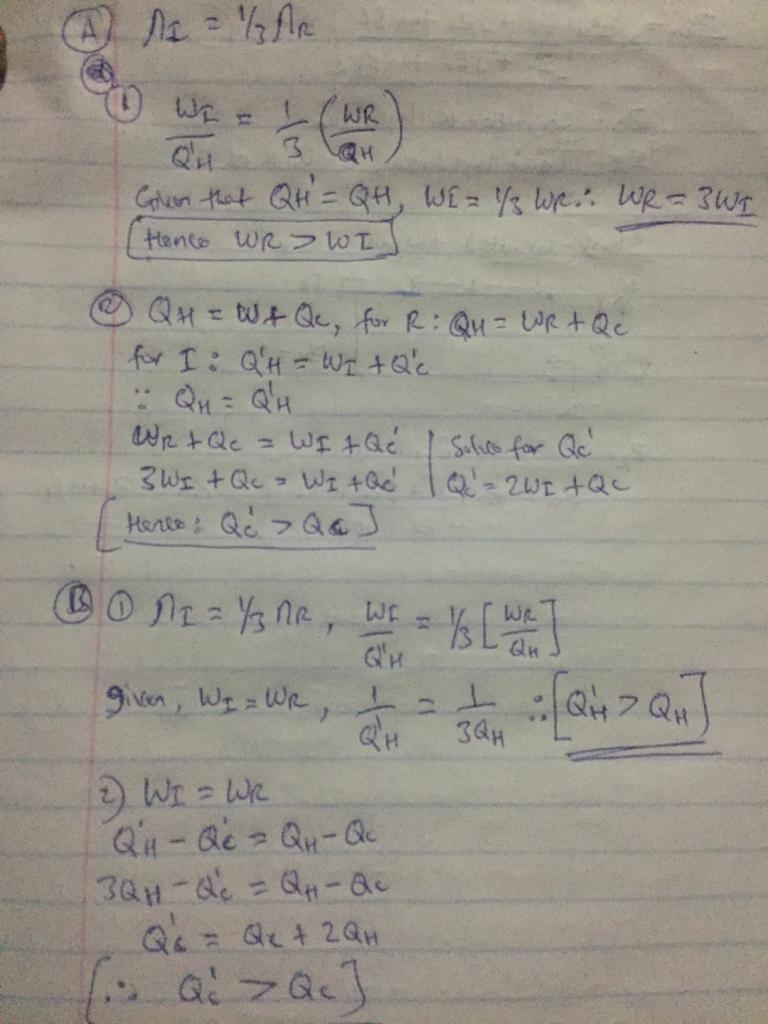 Ⓐ ηI = 1/3 ηR
① WI/Q'H = 1/3 (WR/QH)
Given that QH' = QH, WI = 1/3 WR ∴ WR = 3WI
[Hence WR > WI]
② QH = W + Qc, for R: QH = WR + Qc
for I: Q'H = WI + Q'c
∵ QH = Q'H
WR + Qc = WI + Qc' | Solve for Qc'
3WI + Qc = WI + Qc' | Qc' = 2WI + Qc
[Hence: Qc' > Qc]
Ⓑ ① ηI = 1/3 ηR, WI/Q'H = 1/3 [WR/QH]
given, WI = WR, 1/Q'H = 1/3QH ∴ [Q'H > QH]
2) WI = WR
Q'H - Q'c = QH - Qc
3QH - Q'c = QH - Qc
Q'c = Qc + 2QH
[∴ Qc' > Qc]